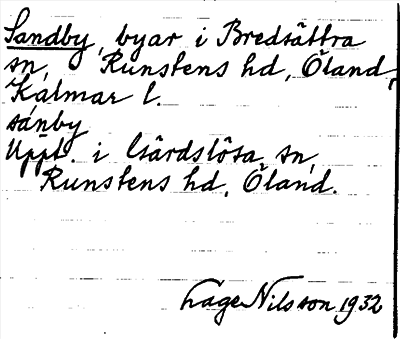 Sandby, byar i Bredsättra
sn, Runstens hd, Öland,
Kalmar l.
sanby
Uppt. i Gärdslösa sn,
Runstens hd, Öland.
Lage Nilsson 1932